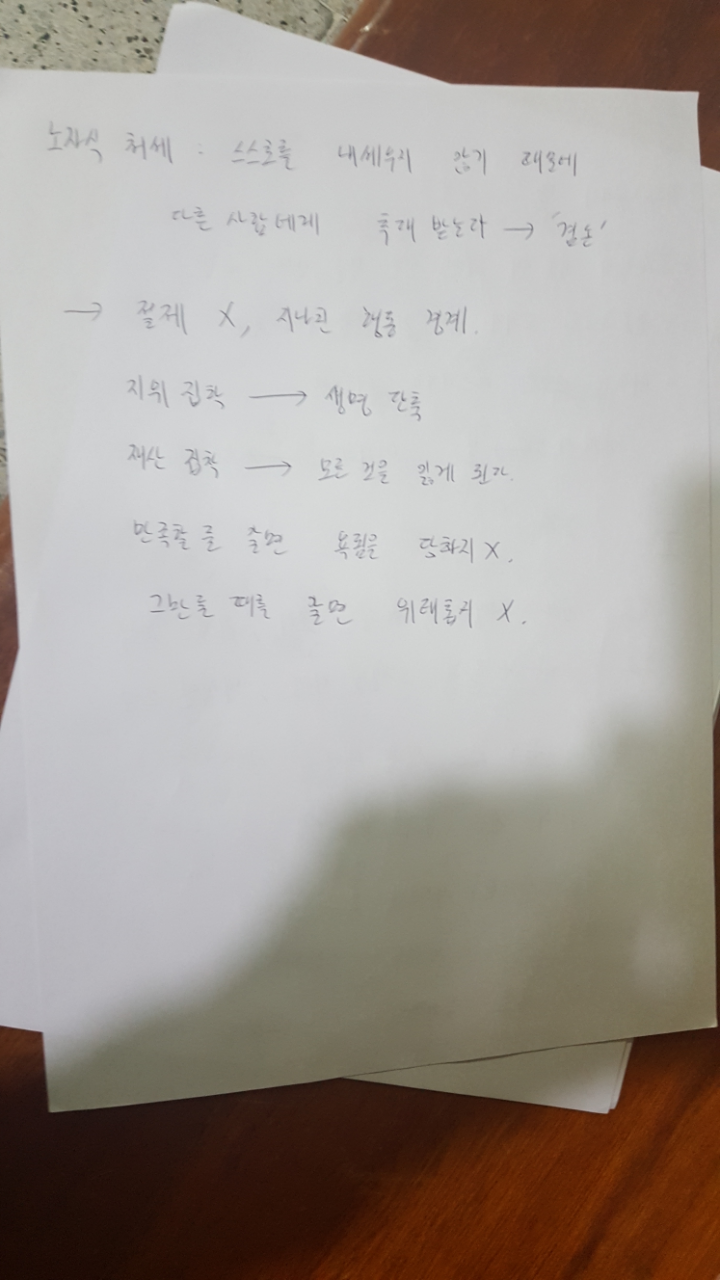 노자식 처세 : 스스로를 내세우지 않기 때문에
다른 사람에게 추대 받는다 → '겸손'
→ 절제 X, 지나친 행동 경계.
지위 집착 → 생명 단축
재산 집착 → 모든 것을 잃게 된다.
만족할 줄 알면 욕됨을 당하지 X.
그만둘 때를 알면 위태롭지 X.